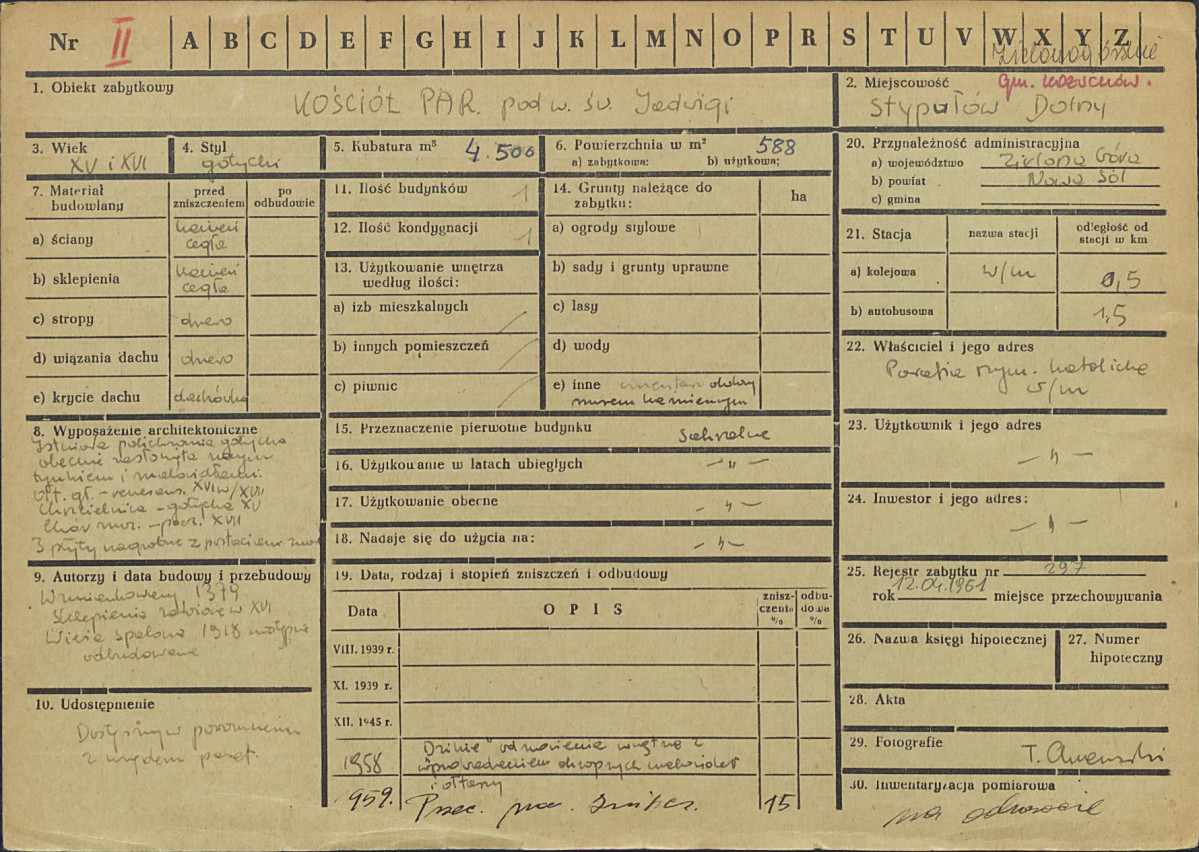 Nr II A B C D E F G H I J K L M N O P R S T U V W X Y Z
1. Obiekt zabytkowy
KOŚCIÓŁ PAR. pod w. św. Jadwigi
2. Miejscowość
gm. KOŻUCHÓW.
Stypułów Dolny
3. Wiek
XV i XVI
4. Styl
gotycki
5. Kubatura m³ 4.500
6. Powierzchnia w m² 588
a) zabytkowa: b) użytkowa;
7. Materiał budowlany
przed zniszczeniem
po odbudowie
a) ściany
kamień
cegła
b) sklepienia
kamień
cegła
c) stropy drewo
d) wiązania dachu drewo
e) krycie dachu dachówka
8. Wyposażenie architektoniczne
Istniała polichromia gotycka
obecnie zasłonięta nowym
tynkiem i malowidłami.
Ołt. gł. - renesans. XVI w/XVII
Chrzcielnica - gotycka XV
Chór muz. - pocz. XVII
3 płyty nagrobne z postaciami
9. Autorzy i data budowy i przebudowy
Wzmiankowany 1379
Sklepienia założone w XVI
Wieża spalona 1918 następnie
odbudowana
10. Udostępnienie
Dostępny w porozumieniu
z urzędem paraf.
11. Ilość budynków 1
12. Ilość kondygnacji 1
13. Użytkowanie wnętrza
według ilości:
a) izb mieszkalnych
b) innych pomieszczeń
c) piwnic
14. Grunty należące do
zabytku:
ha
a) ogrody stylowe
b) sady i grunty uprawne
c) lasy
d) wody
e) inne cmentarz okolony
murem kamiennym
15. Przeznaczenie pierwotne budynku Sakralne
16. Użytkowanie w latach ubiegłych -„-
17. Użytkowanie obecne -„-
18. Nadaje się do użycia na: -„-
19. Data, rodzaj i stopień zniszczeń i odbudowy
Data
OPIS
zniszczenia %
odbudowa %
VIII. 1939 r.
XI. 1939 r.
XII. 1945 r.
1958
"Dzikie" odnowienie wnętrza z
wprowadzeniem okropnych malowideł
i ołtarzy
959. 15
20. Przynależność administracyjna
a) województwo Zielona Góra
b) powiat Nowa Sól
c) gmina
21. Stacja
nazwa stacji
odległość od
stacji w km
a) kolejowa w/m 0,5
b) autobusowa 1,5
22. Właściciel i jego adres
Parafia rzym. katolicka
w/m
23. Użytkownik i jego adres
-„-
24. Inwestor i jego adres:
-„-
25. Rejestr zabytku nr 297
rok 12.04.1961 miejsce przechowywania
26. Nazwa księgi hipotecznej
27. Numer
hipoteczny
28. Akta
29. Fotografie
30. Inwentaryzacja pomiarowa
na odwrocie